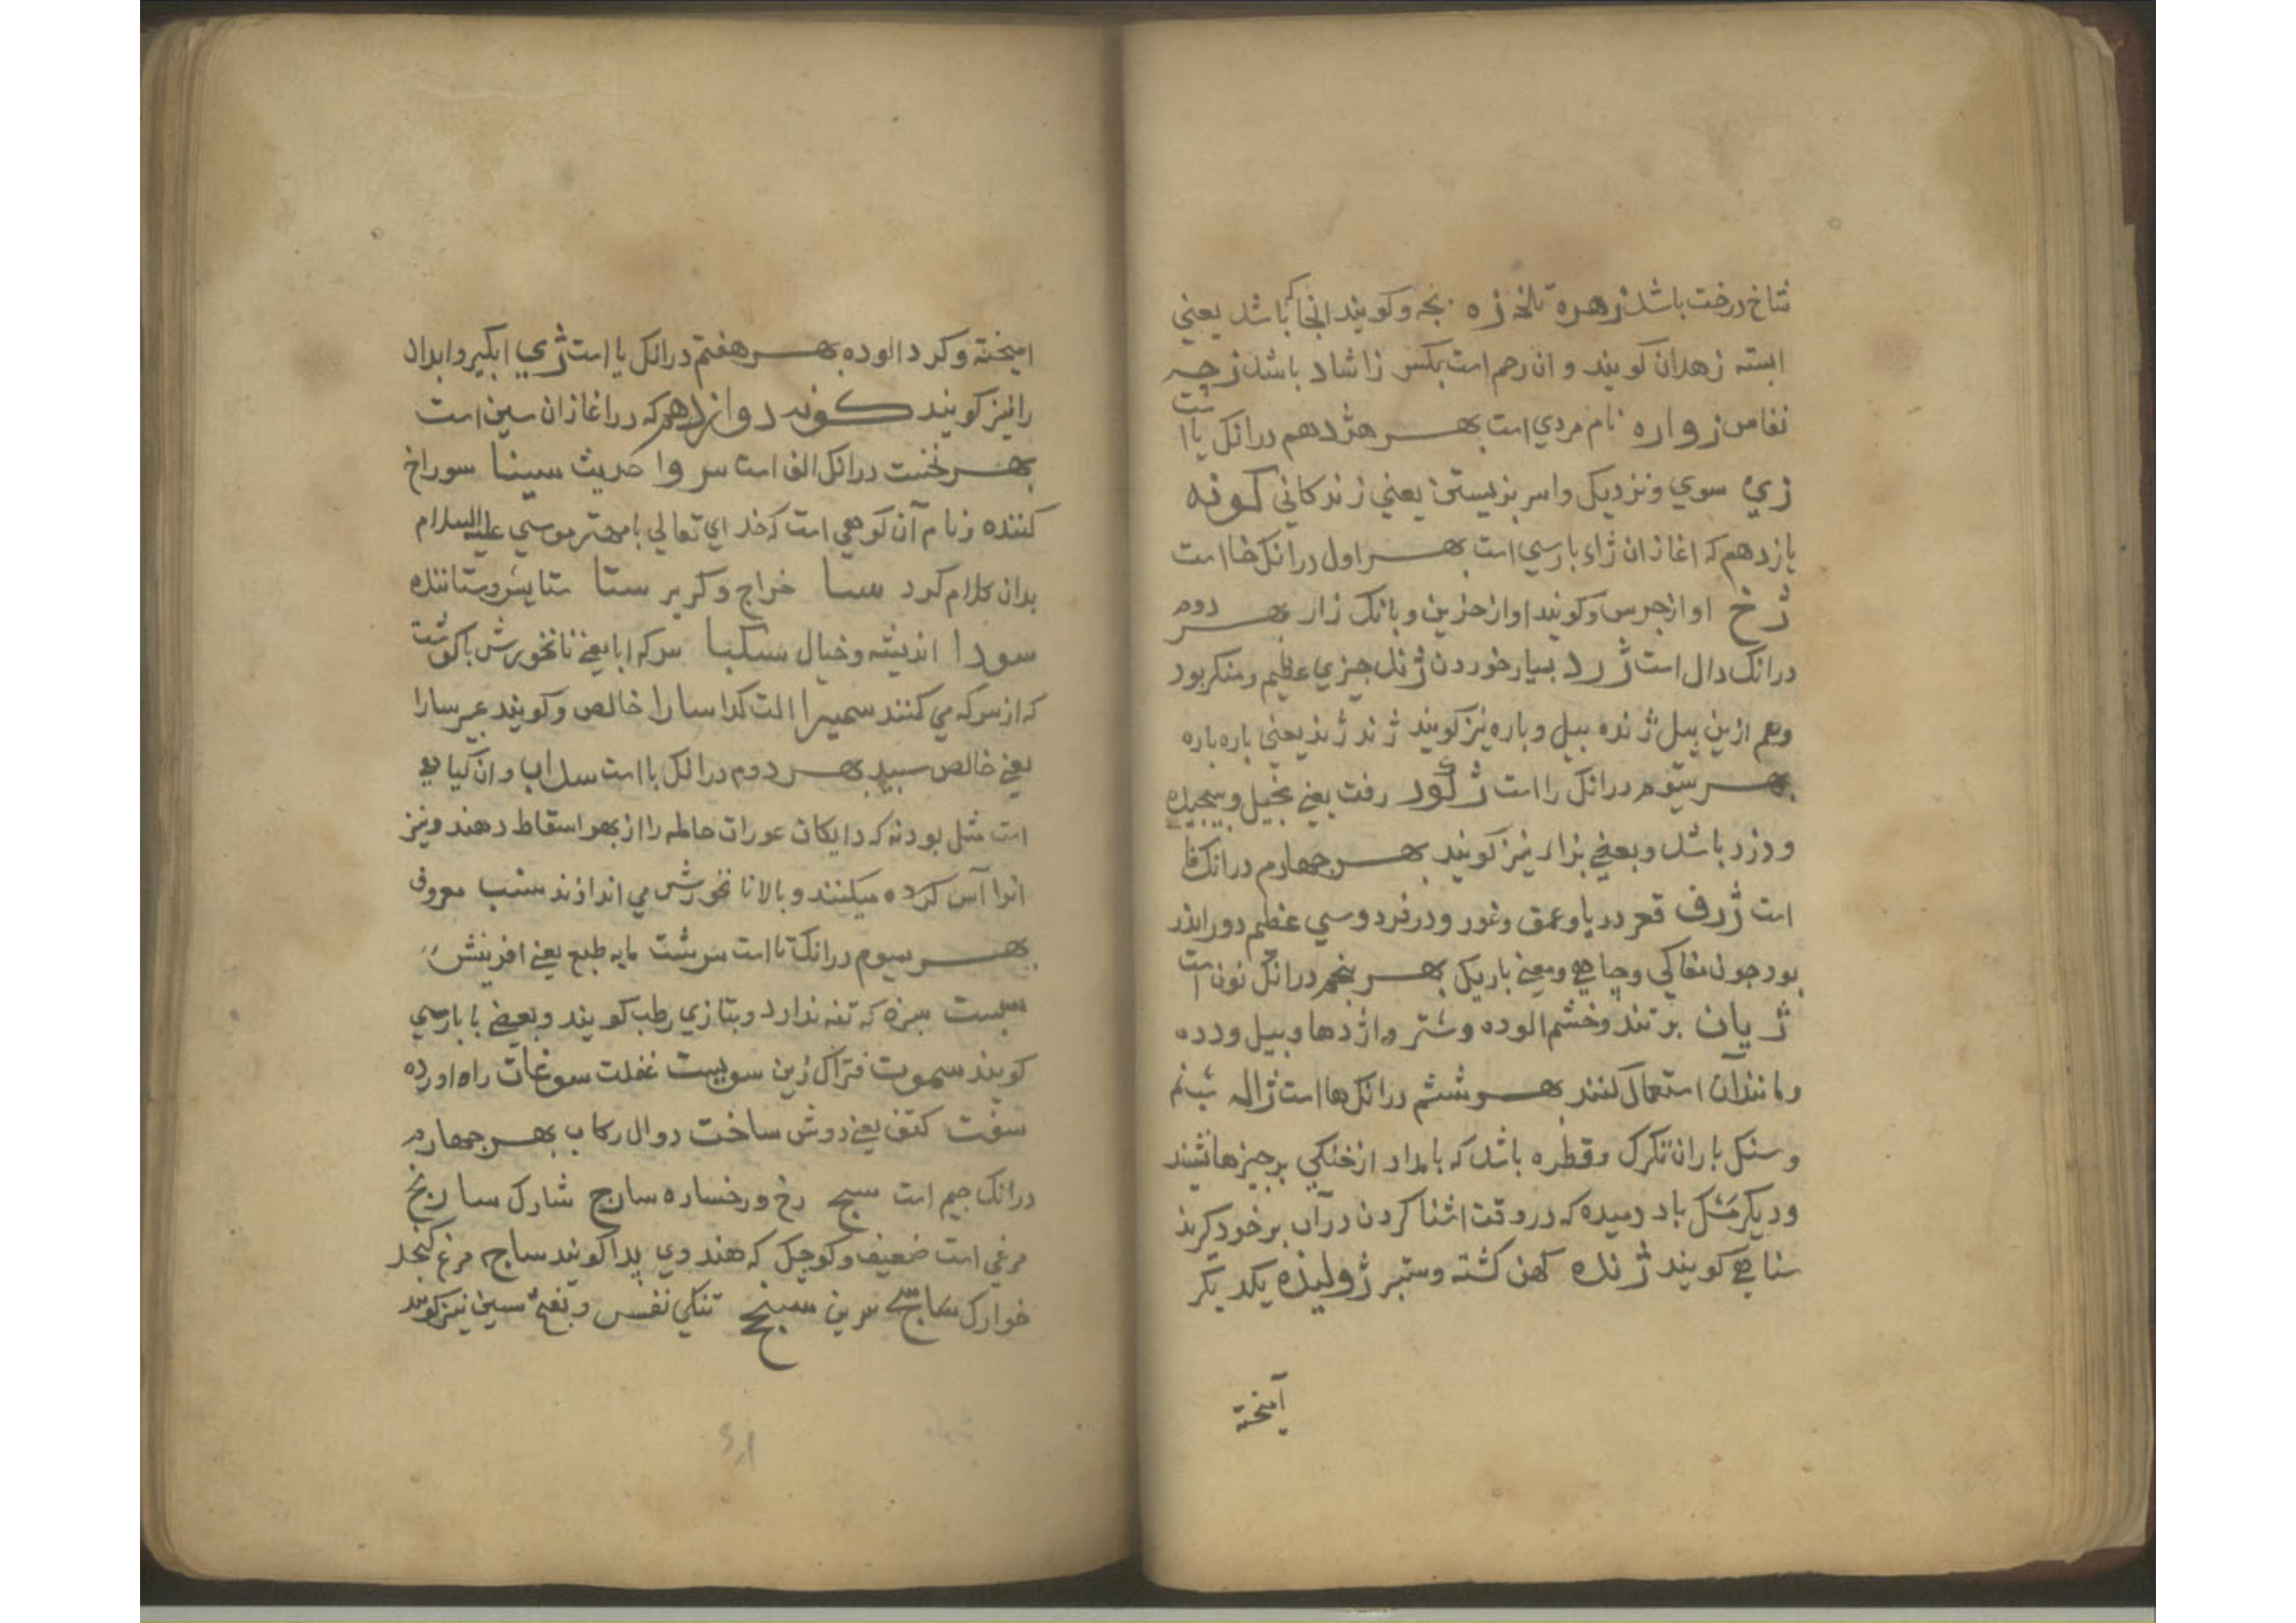 شاخ درخت باشد زهره تلخه زه بچه وکویند انجا که باشد یعنی
ابسته زهدان کویند و ان رحم است بکس زا شاد باشد زچه
نفاس زواره نام مردی است بهر هژدهم درانک یا است
زی سوی ونزدیک وامر بزیستن یعنی زندکانی کونه
یازدهم که اغازان ژاء بارسی است بهر اول درانک خا است
ژخ اواز جرس وکویند اواز حزین وبانک زار بهر دوم
درانک دال است ژرد بسیار خوردن ژند چیزی عظیم ومنکر بود
وهم ازین بیل ژنده بیل وباره نیز کویند ژند ژند یعنی باره باره
بهر سیوم درانک را است ژکور رفت یعنی بخیل وبیجیده
ودزد باشد وبعضی بزاء نیز کویند بهر جهارم درانک فا
است ژرف قعر دریا وعمق وغور ودر فردوسی عظیم دور اندر
بود جون مغاکی وجاهی ومعنی باریک بهر بنجم درانک نون است
ژیان بر تند وخشم الوده وشتر واژدها وبیل ودده
ومانند آن استعمال کنند بهر ششم درانک ها است ژاله شبنم
وسنک باران تکرک وقطره باشد که بامداد از خنکی بر جیزها نشیند
ودیکر مشک باد دمیده که در وقت اشنا کردن در آب بر خود کیرند
شناهی کویند ژنده کهن کشته وستبر ژولیده یکدیکر
آمیخته
امیخته وکرد الوده بهر هفتم درانک یا است ژی ابکیر وابدان
را نیز کویند کونه دوازدهم که در اغازان سین است
بهر نخست درانک الف است سروا حدیث سینا سوراخ
کننده ونام آن کوهی است که خدای تعالی با مهتر موسی علیه السلام
بدان کلام کرد سا خراج وکریر ستا ستایش وستاننده
سودا اندیشه وخیال سکبا سرکه ابا یعنی نانخورش با کوشت
که از سرکه می کنند سمیرا الت کدا سارا خالص وکویند عبیر سارا
یعنی خالص سبید بهر دوم درانک با است سداب وان کیاهی
است مثل بودنه که دایکان عورات حامله را از بهر اسقاط دهند ونیز
انرا آس کرده میکنند وبالا نانخورش می اندازند سنب معروف
بهر سیوم درانک تا است سرشت مایه طبع یعنی افرینش
سبست سبزه که تنه ندارد وبتازی رطب کویند وبعضی با بارسی
کویند سموت فتراک زین سویست غفلت سوغات راه اورده
سفت کتف یعنی دوش ساخت دوال رکاب بهر جهارم
درانک جیم است سج رخ ورخساره سارج شارک سارنج
مرغی است ضعیف وکوچک که هندوی بدا کویند ساج مرغ کنجد
خوارک سرین سنج تنکی نفس وبفتح سین نیز کویند